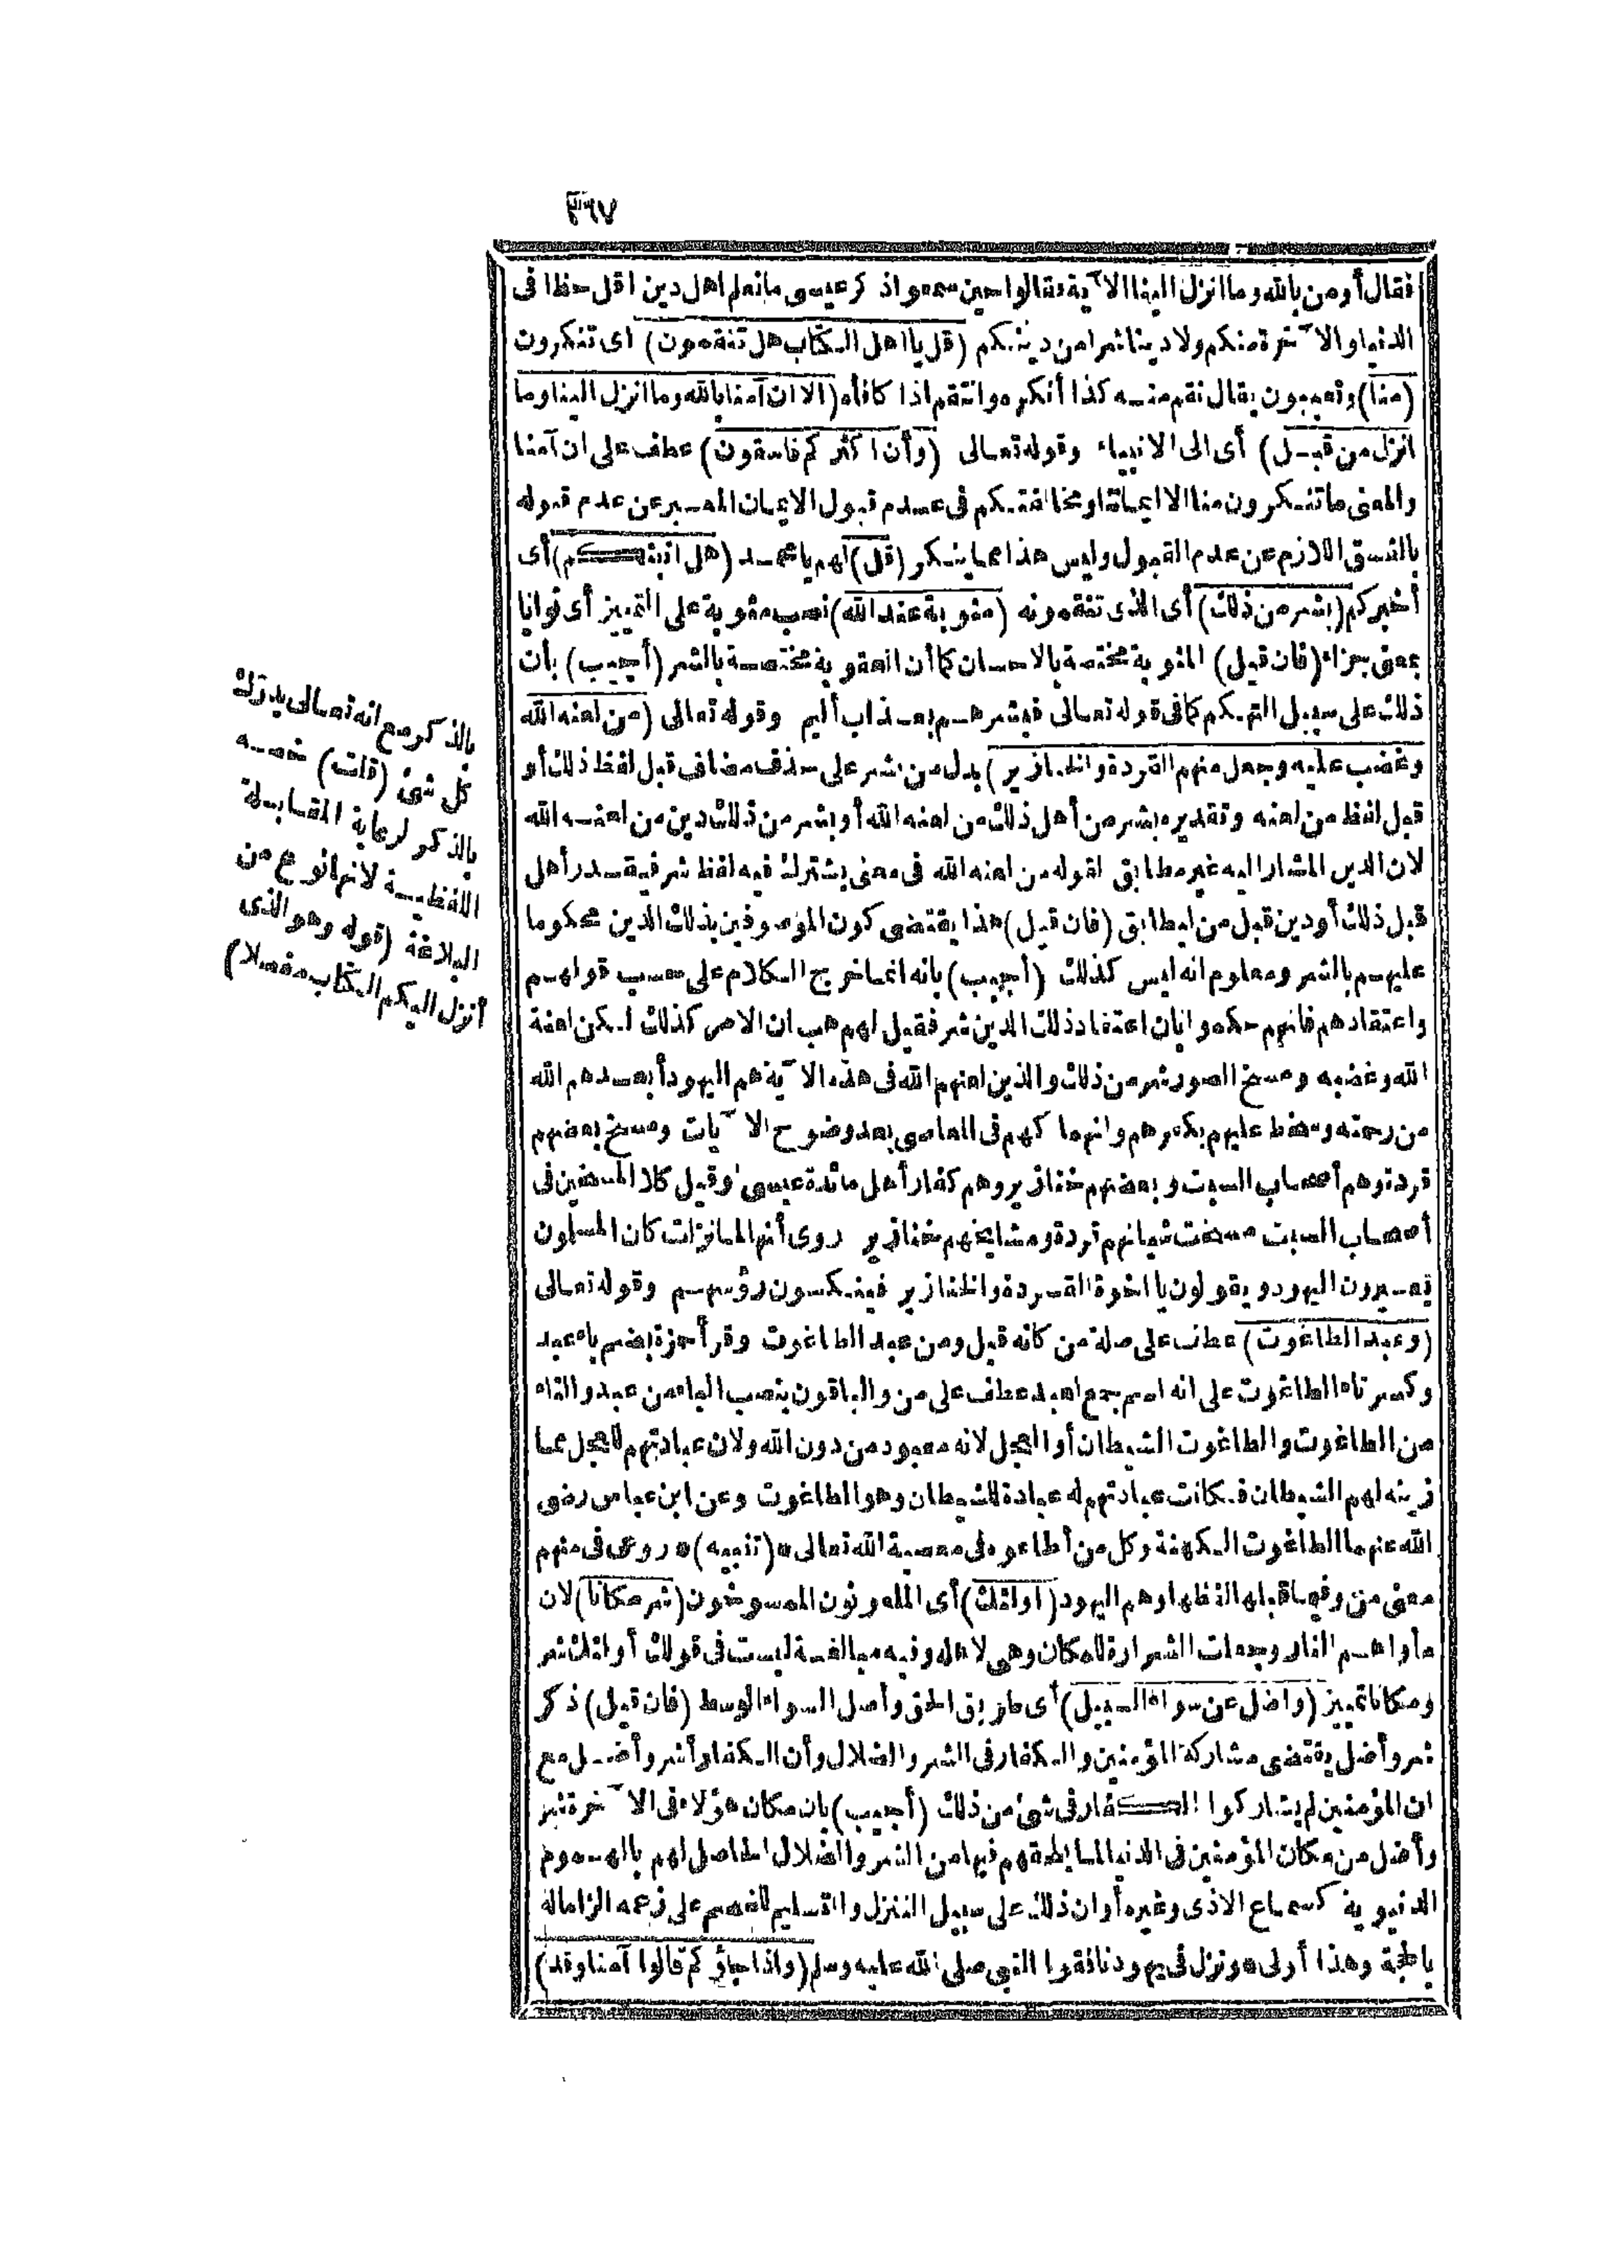 ٣٦٧
فقال أومن بالله وما أنزل الينا الآية فقالوا حين سمعوا ذكر عيسى ما نعلم أهل دين أقل حظا فى
الدنيا والآخرة منكم ولا دينا شرا من دينكم (قل يا أهل الكتاب هل تنقمون) أى تنكرون
(منا) وتعيبون يقال نقم منه كذا أنكره وانتقم اذا كافأه (الا ان آمنا بالله وما أنزل الينا وما
أنزل من قبل) أى الى الانبياء وقوله تعالى (وأن أكثركم فاسقون) عطف على ان آمنا
والمعنى ما تنكرون منا الا ايماننا ومخالفتكم فى عدم قبول الايمان المعبر عن عدم قبوله
بالفسق اللازم عن عدم القبول وليس هذا مما ينكر (قل) لهم يا محمد (هل أنبئكم) أى
أخبركم (بشر من ذلك) أى الذى تنقمونه (مثوبة عند الله) نصب مثوبة على التمييز أى ثوابا
بمعنى جزاء (فان قيل) المثوبة مختصة بالاحسان كما أن العقوبة مختصة بالشر (أجيب) بأن
ذلك على سبيل التهكم كما فى قوله تعالى فبشرهم بعذاب أليم وقوله تعالى (من لعنه الله
وغضب عليه وجعل منهم القردة والخنازير) بدل من بشر على حذف مضاف قبل لفظ ذلك أو
قبل لفظ من لعنه وتقديره بشر من أهل ذلك من لعنه الله أو بشر من ذلك دين من لعنه الله
لان الدين المشار اليه غير مطابق لقوله من لعنه الله فى معنى يشترك فيه لفظ شر فيقدر أهل
قبل ذلك أو دين قبل من ليطابق (فان قيل) هذا يقتضى كون الموصوفين بذلك الدين محكوما
عليهم بالشر ومعلوم انه ليس كذلك (أجيب) بانه انما خرج الكلام على حسب قولهم
واعتقادهم فانهم حكموا بان اعتقاد ذلك الدين شر فقيل لهم هب ان الامر كذلك لكن لعنة
الله وغضبه ومسخ الصور شر من ذلك والذين لعنهم الله فى هذه الآية هم اليهود أبعدهم الله
من رحمته وسخط عليهم بكفرهم وانهماكهم فى المعاصى بعد وضوح الآيات ومسخ بعضهم
قردة وهم أصحاب السبت وبعضهم خنازير وهم كفار أهل مائدة عيسى وقيل كلا المسخين فى
أصحاب السبت مسخت شبانهم قردة ومشايخهم خنازير روى أنها لما نزلت كان المسلمون
يعيرون اليهود ويقولون يا اخوة القردة والخنازير فينكسون رؤسهم وقوله تعالى
(وعبد الطاغوت) عطف على صلة من كانه قيل ومن عبد الطاغوت وقرأ حمزة بضم باء عبد
وكسر تاء الطاغوت على انه اسم جمع لعبد عطف على من والباقون بنصب الباء من عبد والتاء
من الطاغوت والطاغوت الشيطان أو العجل لانه معبود من دون الله ولان عبادتهم للعجل مما
زينه لهم الشيطان فكانت عبادتهم له عبادة للشيطان وهو الطاغوت وعن ابن عباس رضى
الله عنهما الطاغوت الكهنة وكل من أطاعوه فى معصية الله تعالى * (تنبيه) * روعى فى منهم
معنى من وفيما قبلها لفظها وهم اليهود (أولئك) أى الملعونون الممسوخون (شر مكانا) لان
مأواهم النار وجعلت الشرارة للمكان وهى لاهله وفيه مبالغة ليست فى قولك أولئك شر
ومكانا تمييز (وأضل عن سواء السبيل) أى طريق الحق وأصل السواء الوسط (فان قيل) ذكر
شر وأضل يقتضى مشاركة المؤمنين والكفار فى الشر والضلال وأن الكفار أشر وأضل مع
ان المؤمنين لم يشاركوا الكفار فى شئ من ذلك (أجيب) بان مكان هؤلاء فى الآخرة شر
وأضل من مكان المؤمنين فى الدنيا لما يلحقهم فيها من الشر والضلال الحاصل لهم بالهموم
الدنيوية كسماع الاذى وغيره أو ان ذلك على سبيل التنزل والتسليم للخصم على زعمه الزاما له
بالحجة وهذا أولى * ونزل فى يهود نافقوا النبى صلى الله عليه وسلم (واذا جاؤكم قالوا آمنا وقد)
بالذكر مع انه تعالى يدرك
كل شئ (قلت) خصه
بالذكر لرعاية المقابلة
اللفظية لانها نوع من
البلاغة (قوله وهو الذى
أنزل اليكم الكتاب مفصلا)